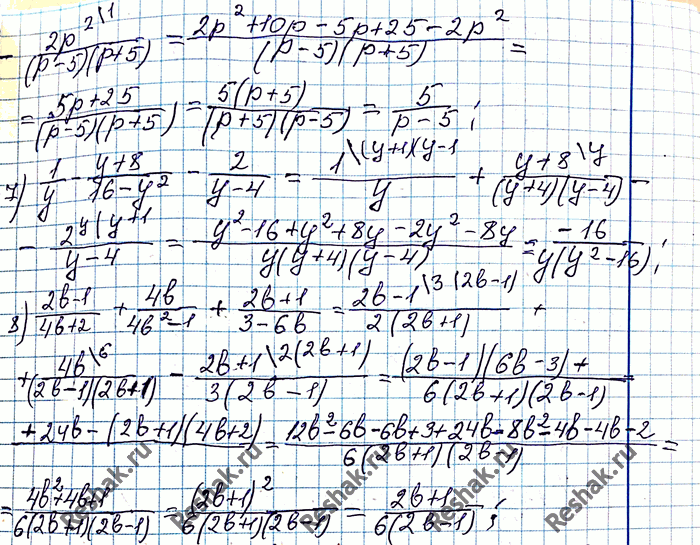 - 2p² \1 / (p-5)(p+5) = (2p²+10p-5p+25-2p²) / (p-5)(p+5) =
= (5p+25) / (p-5)(p+5) = 5(p+5) / (p+5)(p-5) = 5 / (p-5);
7) 1/y - (y+8)/(16-y²) - 2/(y-4) = 1 \(y+1)(y-1 / y + y+8 \y / (y+4)(y-4) -
- 2 y(y+1 / (y-4) = (y²-16+y²+8y-2y²-8y) / y(y+4)(y-4) = -16 / y(y²-16);
8) (2b-1)/(4b+2) + 4b/(4b²-1) + (2b+1)/(3-6b) = 2b-1 \3(2b-1) / 2(2b+1) +
+ 4b \6 / (2b-1)(2b+1) - 2b+1 \2(2b+1) / 3(2b-1) = (2b-1)(6b-3)+ / 6(2b+1)(2b-1)
+24b-(2b+1)(4b+2) = (12b²-6b-6b+3+24b-8b²-4b-4b-2) / 6(2b+1)(2b-1) =
= (4b²+4b+1) / 6(2b+1)(2b-1) = (2b+1)² / 6(2b+1)(2b-1) = (2b+1) / 6(2b-1);
Reshak.ru
Reshak.ru
Reshak.ru
Reshak.ru